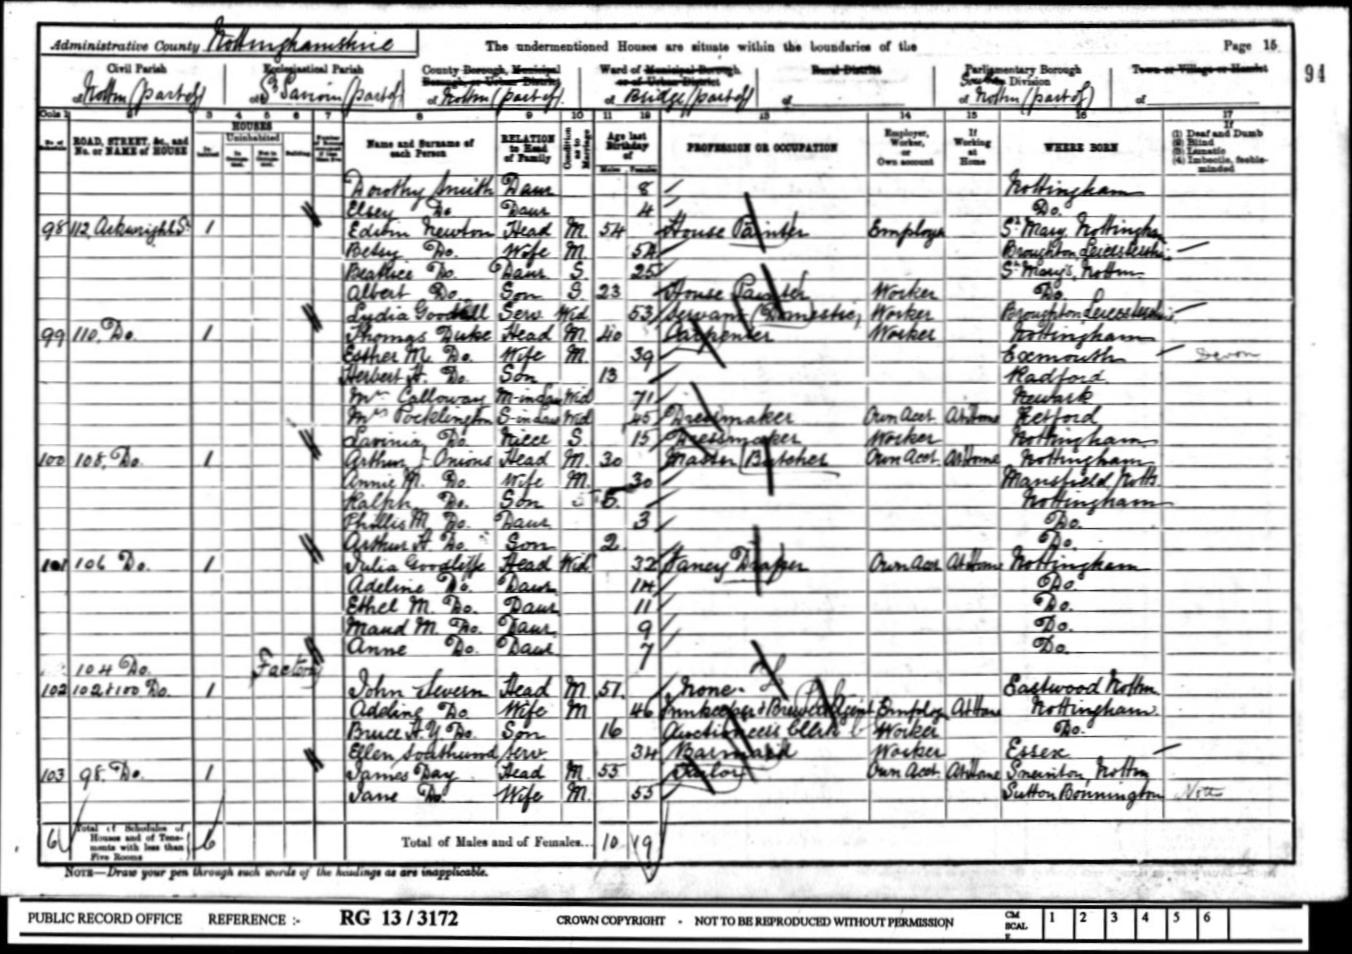 Administrative County Nottinghamshire The undermentioned Houses are situate within the boundaries of the Page 15
94
Civil Parish Ecclesiastical Parish County Borough, Municipal Borough or Urban District Ward of Municipal Borough or of Urban District Rural District Parliamentary Borough Division Town or Village or Hamlet
of Nottm (part of) of (part of) of Nottm (part of) of Bridge (part of) of of Nottm (part of) of
Cols 1 2 3 4 5 6 7 8 9 10 11 12 13 14 15 16 17
No. of Schedule ROAD, STREET, &c., and No. or NAME of HOUSE HOUSES Inhabited Uninhabited In Occupation Not in Occupation Building Name and Surname of each Person RELATION to Head of Family Condition as to Marriage Age last Birthday of Males Females PROFESSION OR OCCUPATION Employer, Worker, or Own account If Working at Home WHERE BORN If (1) Deaf and Dumb (2) Blind (3) Lunatic (4) Imbecile, feeble-minded
Dorothy Smith Daur 8 Nottingham
Elsey Do Daur 4 Do.
98 112 Arkwright St 1 Edwin Newton Head M. 54 House Painter Employer St Mary Nottingham
Betsy Do. Wife M. 54 Broughton Leicestershire
Beatrice Do. Daur S. 25 St Mary's, Nottm
Albert Do. Son S. 23 House Painter Worker Do.
Lydia Goodall Serv Wid 53 Servant (Domestic) Worker Broughton Leicestershire
99 110 Do. 1 Thomas Duke Head M. 40 Carpenter Worker Nottingham
Esther M. Do. Wife M. 39 Exmouth Devon
Herbert H. Do. Son 13 Radford
Mrs Calloway M-in-Law Wid 71 Newark
Mrs Pocklington S-in-Law Wid 45 Dressmaker Own Acct At Home Retford
Lavinia Do. Niece S. 15 Dressmaker Worker Nottingham
100 108, Do. 1 Arthur J Onions Head M. 30 Master Butcher Own Acct. At Home Nottingham
Annie M. Do. Wife M. 30 Mansfield Notts
Ralph Do. Son 5 Nottingham
Phillis M. Do. Daur 3 Do.
Arthur H. Do. Son 2 Do.
101 106 Do. 1 Julia Goodliffe Head Wid 32 Fancy Draper Own Acct At Home Nottingham
Adeline Do. Daur 14 Do.
Ethel M. Do. Daur 11 Do.
Maud M. Do. Daur 9 Do.
Anne Do. Daur 7 Do.
104 Do. Factory
102 102 & 100 Do. 1 John Severn Head M 51 None Eastwood Nottm
Do. Wife M 46 Innkeeper & Brewers Agent Employer At Home Nottingham.
Bruce H. Y. Do. Son 16 Auctioneers Clerk Worker Do.
Ellen Southwood Serv. 34 Barmaid Worker Essex
103 98. Do. 1 James Day Head M. 55 Tailor Own Acct At Home Sneinton, Nottm
Jane Do. Wife M. 55 Sutton Bonnington Notts
6 Total of Schedules of Houses and of Tenements with less than Five Rooms 6 Total of Males and of Females... 10 19
NOTE—Draw your pen through such words of the headings as are inapplicable.
PUBLIC RECORD OFFICE REFERENCE :- RG 13 / 3172 CROWN COPYRIGHT - NOT TO BE REPRODUCED WITHOUT PERMISSION CM SCALE 1 2 3 4 5 6